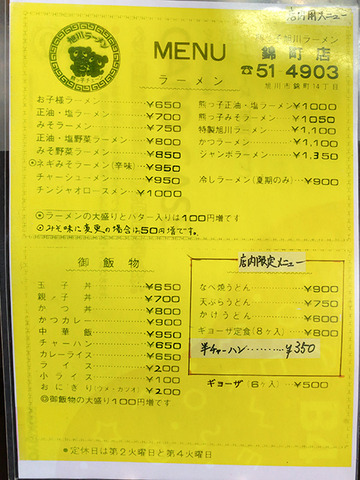 店内用メニュー
旭川ラーメン
熊っ子チェーン
MENU
熊っ子旭川ラーメン
錦町店
☎51-4903
旭川市錦町14丁目
ラーメン
お子様ラーメン ¥650
正油・塩ラーメン ¥700
みそラーメン ¥750
正油・塩野菜ラーメン ¥800
みそ野菜ラーメン ¥850
◎ネギみそラーメン(辛味) ¥950
チャーシューメン ¥950
チンジャオロースメン ¥1000
熊っ子正油・塩ラーメン ¥1000
熊っ子みそラーメン ¥1050
特製旭川ラーメン ¥1,100
かつラーメン ¥1,100
ジャンボラーメン ¥1,350
冷しラーメン(夏期のみ) ¥900
◎ラーメンの大盛りとバター入りは100円増です
◎みそ味に変更の場合は50円増です。
御飯物
玉子丼 ¥650
親子丼 ¥700
かつ丼 ¥800
かつカレー ¥900
中華飯 ¥950
チャーハン ¥650
カレーライス ¥650
ライス ¥200
小ライス ¥100
おにぎり(ウメ・カツオ) ¥200
◎御飯物の大盛り100円増です
店内限定メニュー
なべ焼うどん ¥900
天ぷらうどん ¥750
かけうどん ¥600
ギョーザ定食(8ヶ入) ¥800
半チャーハン ¥350
ギョーザ(6ヶ入) ¥500
●定休日は第2火曜日と第4火曜日